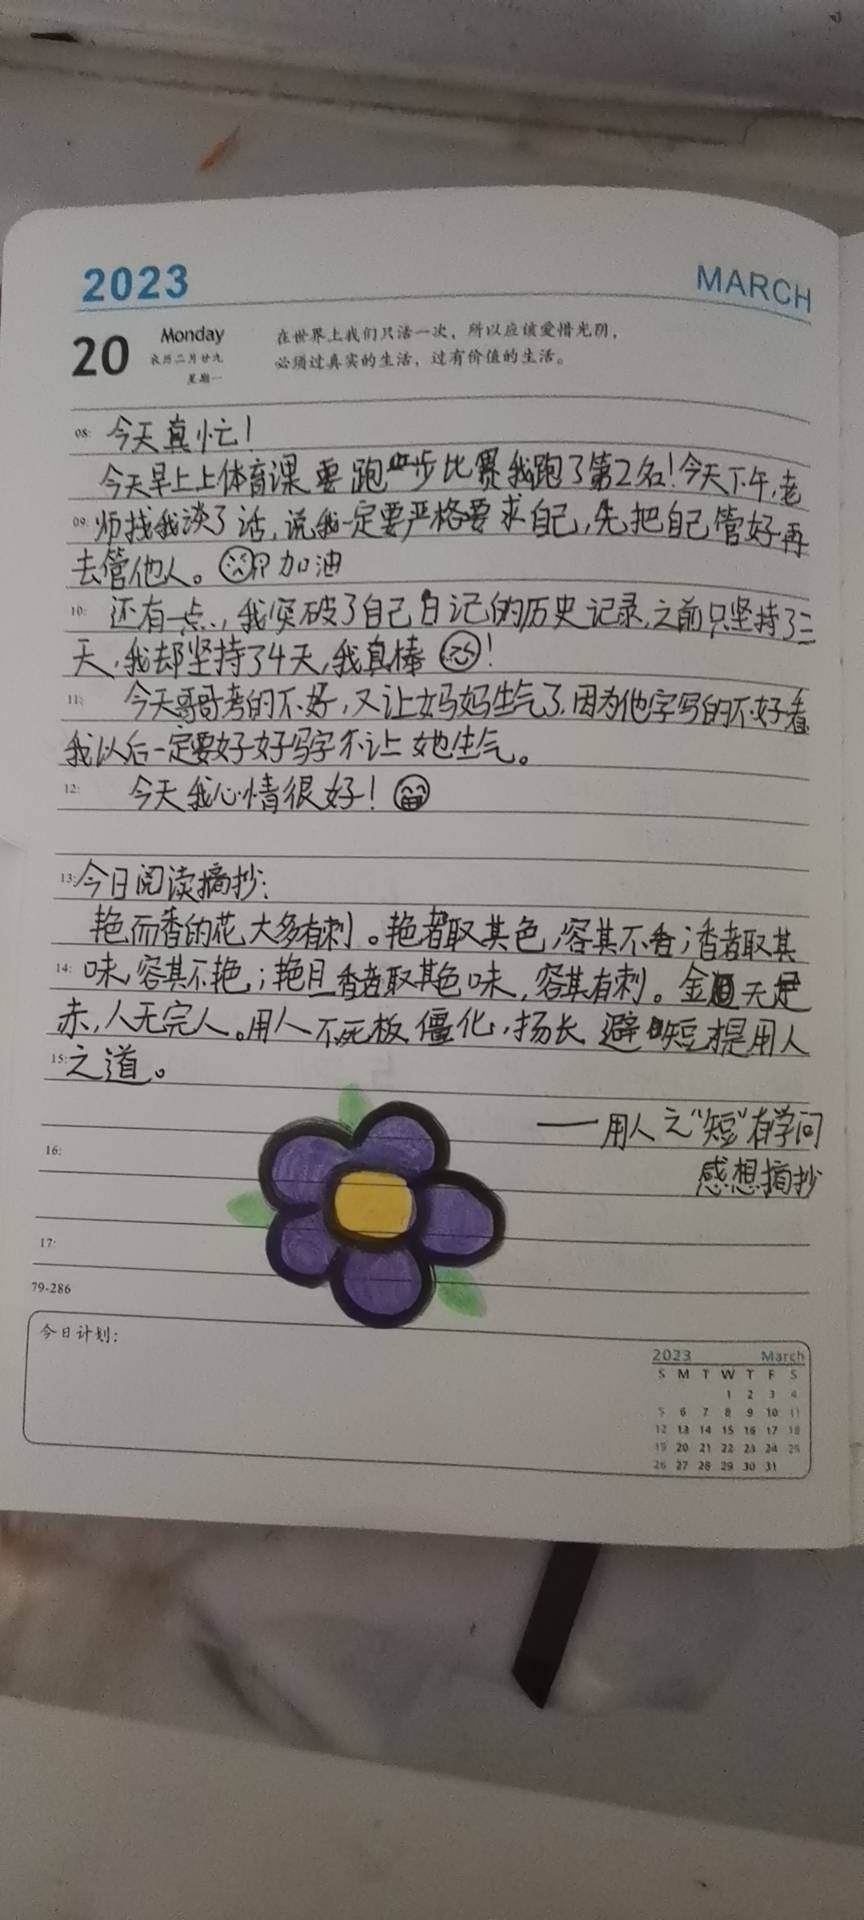 2023 MARCH
20 Monday 农历二月廿九 星期一
在世界上我们只活一次，所以应该爱惜光阴，
必须过真实的生活，过有价值的生活。
08: 今天真忙！
今天早上上体育课要跑步比赛我跑了第2名！今天下午，老
09: 师找我谈了话，说我一定要严格要求自己，先把自己管好再
去管他人。加油
10: 还有一点，我突破了自己日记的历史记录，之前只坚持了三
天，我却坚持了4天，我真棒！
11: 今天哥哥考的不好，又让妈妈生气了，因为他字写的不好看
我以后一定要好好写字不让她生气。
12: 今天我心情很好！
13: 今日阅读摘抄：
艳而香的花大多有刺。艳者取其色，容其不香；香者取其
14: 味，容其不艳；艳且香者取其色味，容其有刺。金无足
赤，人无完人。用人不死板僵化，扬长避短才是用人
15: 之道。
——用人之“短”有学问
16:
感想摘抄
17:
79-286
今日计划：
2023 March
S M T W T F S
1 2 3 4
5 6 7 8 9 10 11
12 13 14 15 16 17 18
19 20 21 22 23 24 25
26 27 28 29 30 31